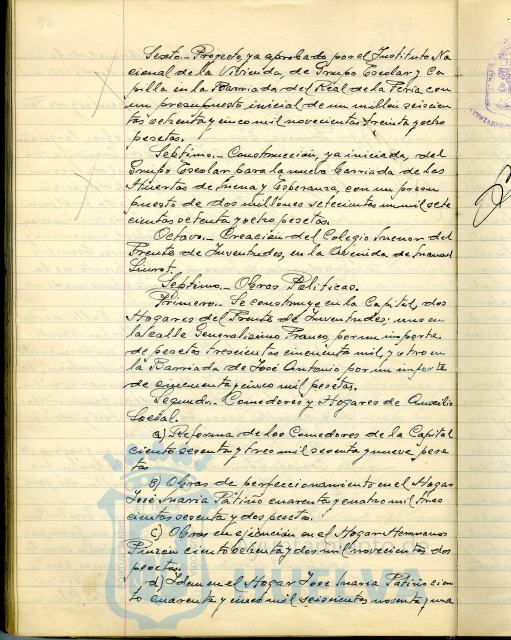 Sexto.- Proyecto, ya aprobado por el Instituto Na
cional de la Vivienda, de Grupo Escolar y Ca
pilla en la Barriada del Real de la Feria con
un presupuesto inicial de un millon seiscien
tas ochenta y cinco mil novecientas treinta y ocho
pesetas.
Septimo.- Construcción, ya iniciada, del
Grupo Escolar para la nueva barriada de las
Huertas de Mena y Esperanza, con un presu
puesto de dos millones setecientas un mil sete
cientas setenta y ocho pesetas.
Octavo.- Creación del Colegio Menor del
Frente de Juventudes, en la Avenida de Manuel
Siurot.
Septimo.- Obras Politicas.
Primero.- Se construye en la Capital, dos
Hogares del Frente de Juventudes; uno en
la calle Generalisimo Franco, por un importe
de pesetas trescientas cincuenta mil, y otro en
la Barriada de José Antonio por un importe
de cincuenta y cinco mil pesetas.
Segundo.- Comedores y Hogares de Auxilio
Social.
a) Reforma de los Comedores de la Capital
ciento sesenta y tres mil sesenta y nueve pese
tas
B) Obras de perfeccionamiento en el Hogar
José Maria Patiño cuarenta y cuatro mil tres
cientas sesenta y dos pesetas.
c) Obras en ejecución en el Hogar Hermanos
Pinzon ciento ochenta y dos mil novecientas dos
pesetas.
d) Idem en el Hogar Jose Maria Patiño cien
to cuarenta y cinco mil seiscientas noventa y una
HUELVA